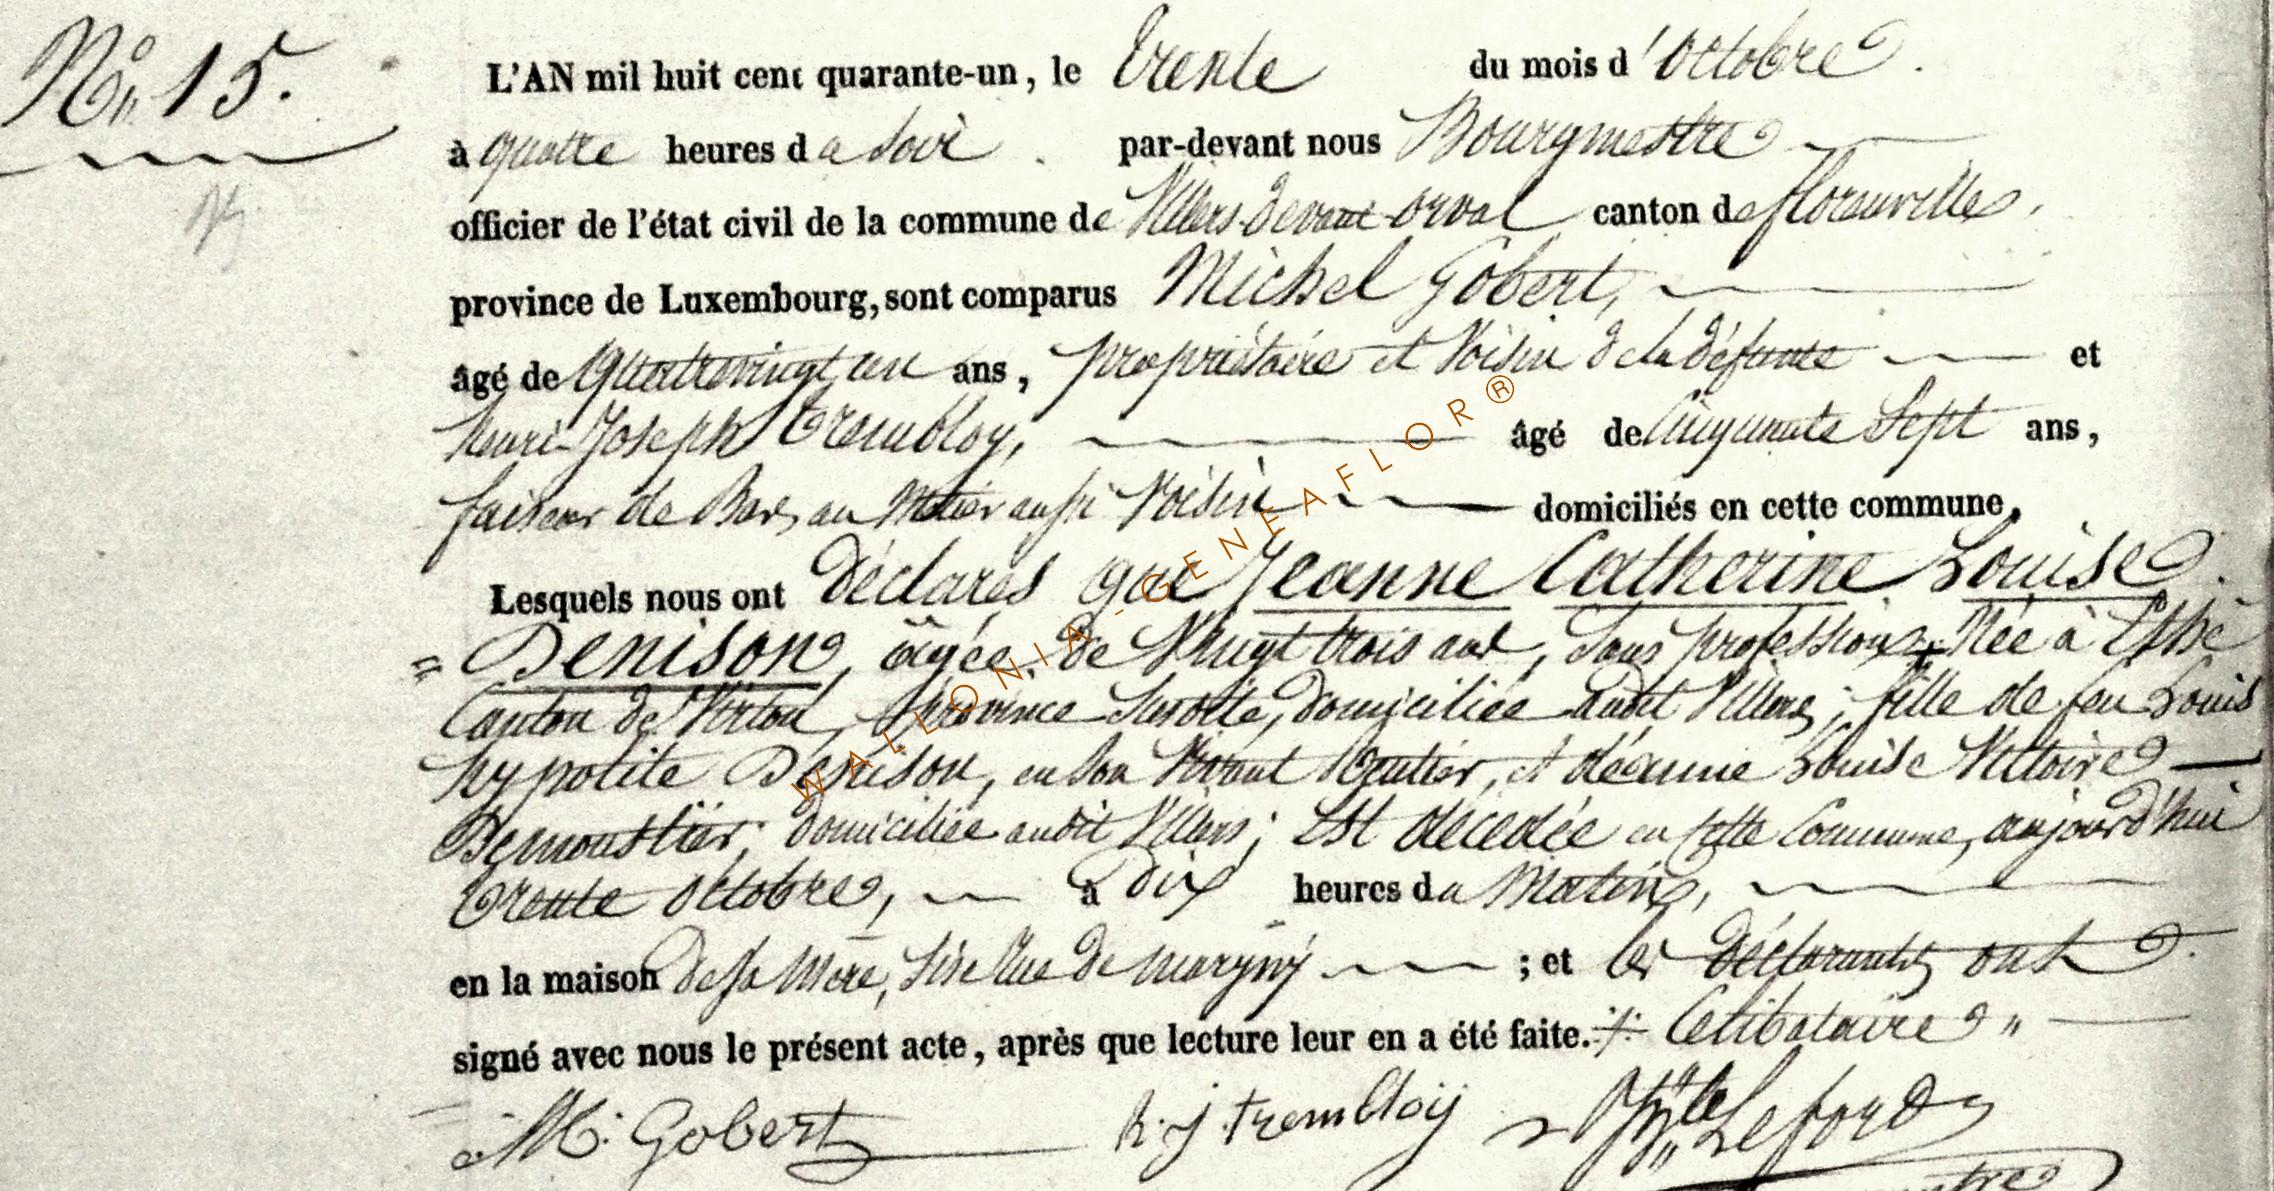 N° 15.
L'AN mil huit cent quarante-un, le trente du mois d'Octobre.
à quatre heures du soir par-devant nous Bourgmestre
officier de l'état civil de la commune de Villers-devant-orval canton de florenville,
province de Luxembourg, sont comparus Michel Gobert,
âgé de quatrevingt un ans, propriétaire et voisin de la défunte et
henri-Joseph Trembloy, âgé de Cinquante Sept ans,
faiseur de Bas, au Métier aussi Voisin domiciliés en cette commune,
Lesquels nous ont déclarés que Jeanne Catherine Louise
Denison, âgée de Vingt trois ans, Sans profession, Née à Ethe
Canton de Virton, province Susdite, domiciliée audit Villers; fille de feu Louis
hypolite Denison, en son Vivant Rentier, et de Louise Victoire
Demoustier, domiciliée audit Villers; Est décédée en cette Commune, aujourd'hui
trente octobre, à Dix heures du Matin,
en la maison de sa Mère, sise Rue de margny ; et les déclarants ont
signé avec nous le présent acte, après que lecture leur en a été faite. Celibataire
M. Gobert h. j. trembloy hyte Leford
WALLONIA-GENEAFLOR®